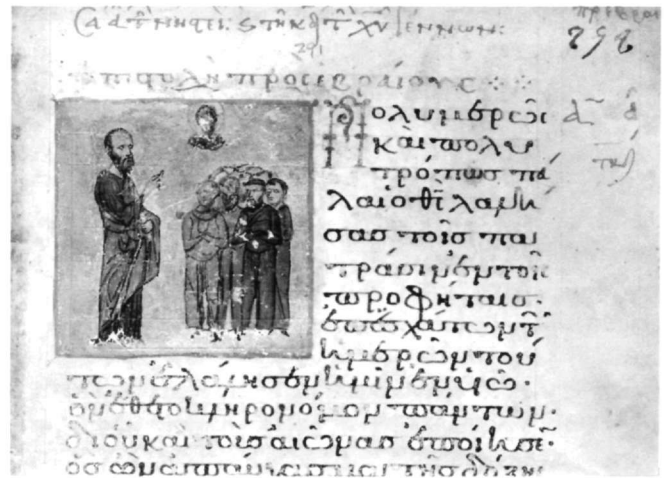 ἐπιστολὴ πρὸς ἑβραίους
Πολυμερῶς
καὶ πολυ
τρόπως πά
λαι ὁ θς λαλή
σας τοῖς πα
τράσιν ἐν τοῖς
προφήταις·
ἐπ' ἐσχάτων τ
ἡμερῶν τού
των ἐλάλησεν ἡμῖν ἐν υἱῷ·
ὃν ἔθετο κληρονόμον πάντων·
δι' οὗ καὶ τοὺς αἰῶνας ἐποίησεν·
ὃς ὢν ἀπαύγασμα τῆς δόξης